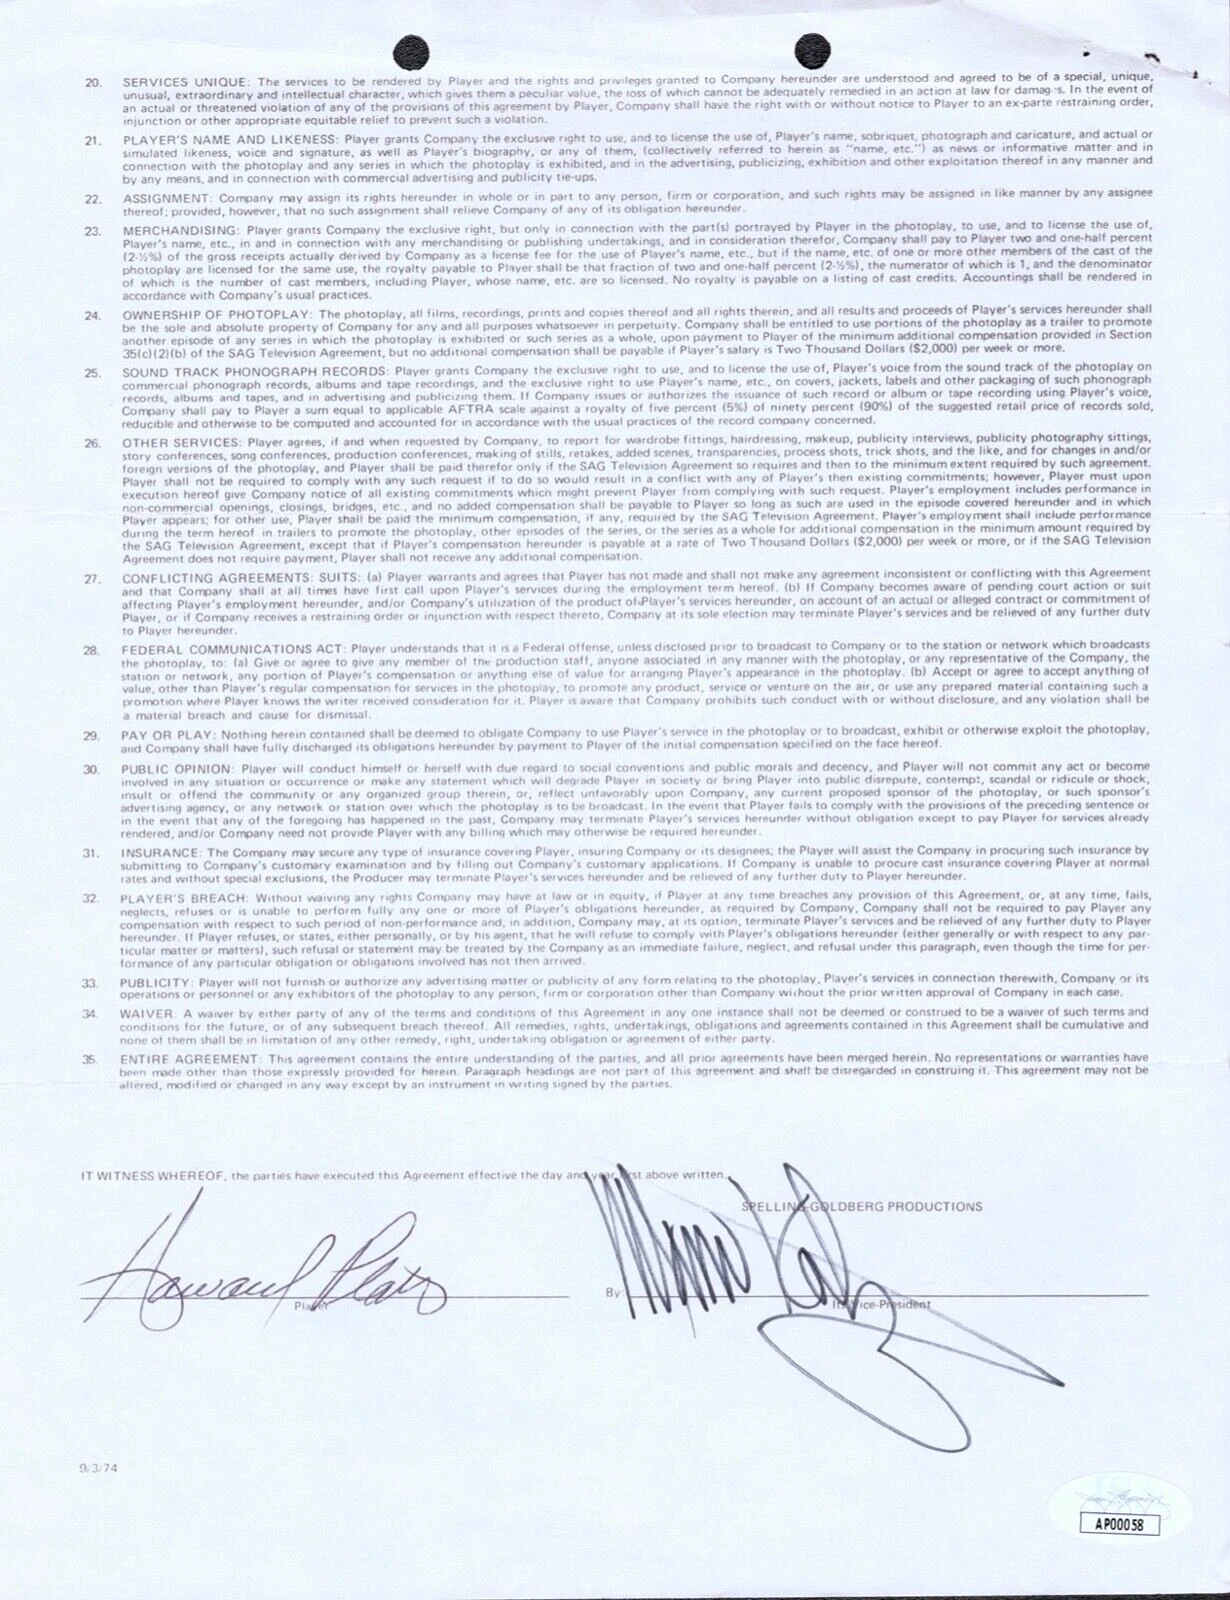 20. SERVICES UNIQUE: The services to be rendered by Player and the rights and privileges granted to Company hereunder are understood and agreed to be of a special, unique,
unusual, extraordinary and intellectual character, which gives them a peculiar value, the loss of which cannot be adequately remedied in an action at law for damages. In the event of
an actual or threatened violation of any of the provisions of this agreement by Player, Company shall have the right with or without notice to Player to an ex-parte restraining order,
injunction or other appropriate equitable relief to prevent such a violation.
21. PLAYER'S NAME AND LIKENESS: Player grants Company the exclusive right to use, and to license the use of, Player's name, sobriquet, photograph and caricature, and actual or
simulated likeness, voice and signature, as well as Player's biography, or any of them, (collectively referred to herein as "name, etc.") as news or informative matter and in
connection with the photoplay and any series in which the photoplay is exhibited, and in the advertising, publicizing, exhibition and other exploitation thereof in any manner and
by any means, and in connection with commercial advertising and publicity tie-ups.
22. ASSIGNMENT: Company may assign its rights hereunder in whole or in part to any person, firm or corporation, and such rights may be assigned in like manner by any assignee
thereof; provided, however, that no such assignment shall relieve Company of any of its obligation hereunder.
23. MERCHANDISING: Player grants Company the exclusive right, but only in connection with the part(s) portrayed by Player in the photoplay, to use, and to license the use of,
Player's name, etc., in and in connection with any merchandising or publishing undertakings, and in consideration therefor, Company shall pay to Player two and one-half percent
(2-½%) of the gross receipts actually derived by Company as a license fee for the use of Player's name, etc., but if the name, etc. of one or more other members of the cast of the
photoplay are licensed for the same use, the royalty payable to Player shall be that fraction of two and one-half percent (2-½%), the numerator of which is 1, and the denominator
of which is the number of cast members, including Player, whose name, etc. are so licensed. No royalty is payable on a listing of cast credits. Accountings shall be rendered in
accordance with Company's usual practices.
24. OWNERSHIP OF PHOTOPLAY: The photoplay, all films, recordings, prints and copies thereof and all rights therein, and all results and proceeds of Player's services hereunder shall
be the sole and absolute property of Company for any and all purposes whatsoever in perpetuity. Company shall be entitled to use portions of the photoplay as a trailer to promote
another episode of any series in which the photoplay is exhibited or such series as a whole, upon payment to Player of the minimum additional compensation provided in Section
35(c)(2)(b) of the SAG Television Agreement, but no additional compensation shall be payable if Player's salary is Two Thousand Dollars ($2,000) per week or more.
25. SOUND TRACK PHONOGRAPH RECORDS: Player grants Company the exclusive right to use, and to license the use of, Player's voice from the sound track of the photoplay on
commercial phonograph records, albums and tape recordings, and the exclusive right to use Player's name, etc., on covers, jackets, labels and other packaging of such phonograph
records, albums and tapes, and in advertising and publicizing them. If Company issues or authorizes the issuance of such record or album or tape recording using Player's voice,
Company shall pay to Player a sum equal to applicable AFTRA scale against a royalty of five percent (5%) of ninety percent (90%) of the suggested retail price of records sold,
reducible and otherwise to be computed and accounted for in accordance with the usual practices of the record company concerned.
26. OTHER SERVICES: Player agrees, if and when requested by Company, to report for wardrobe fittings, hairdressing, makeup, publicity interviews, publicity photography sittings,
story conferences, song conferences, production conferences, making of stills, retakes, added scenes, transparencies, process shots, trick shots, and the like, and for changes in and/or
foreign versions of the photoplay, and Player shall be paid therefor only if the SAG Television Agreement so requires and then to the minimum extent required by such agreement.
Player shall not be required to comply with any such request if to do so would result in a conflict with any of Player's then existing commitments; however, Player must upon
execution hereof give Company notice of all existing commitments which might prevent Player from complying with such request. Player's employment includes performance in
non-commercial openings, closings, bridges, etc., and no added compensation shall be payable to Player so long as such are used in the episode covered hereunder and in which
Player appears; for other use, Player shall be paid the minimum compensation, if any, required by the SAG Television Agreement. Player's employment shall include performance
during the term hereof in trailers to promote the photoplay, other episodes of the series, or the series as a whole for additional compensation in the minimum amount required by
the SAG Television Agreement, except that if Player's compensation hereunder is payable at a rate of Two Thousand Dollars ($2,000) per week or more, or if the SAG Television
Agreement does not require payment, Player shall not receive any additional compensation.
27. CONFLICTING AGREEMENTS: SUITS: (a) Player warrants and agrees that Player has not made and shall not make any agreement inconsistent or conflicting with this Agreement
and that Company shall at all times have first call upon Player's services during the employment term hereof. (b) If Company becomes aware of pending court action or suit
affecting Player's employment hereunder, and/or Company's utilization of the product of Player's services hereunder, on account of an actual or alleged contract or commitment of
Player, or if Company receives a restraining order or injunction with respect thereto, Company at its sole election may terminate Player's services and be relieved of any further duty
to Player hereunder.
28. FEDERAL COMMUNICATIONS ACT: Player understands that it is a Federal offense, unless disclosed prior to broadcast to Company or to the station or network which broadcasts
the photoplay, to: (a) Give or agree to give any member of the production staff, anyone associated in any manner with the photoplay, or any representative of the Company, the
station or network, any portion of Player's compensation or anything else of value for arranging Player's appearance in the photoplay. (b) Accept or agree to accept anything of
value, other than Player's regular compensation for services in the photoplay, to promote any product, service or venture on the air, or use any prepared material containing such a
promotion where Player knows the writer received consideration for it. Player is aware that Company prohibits such conduct with or without disclosure, and any violation shall be
a material breach and cause for dismissal.
29. PAY OR PLAY: Nothing herein contained shall be deemed to obligate Company to use Player's service in the photoplay or to broadcast, exhibit or otherwise exploit the photoplay,
and Company shall have fully discharged its obligations hereunder by payment to Player of the initial compensation specified on the face hereof.
30. PUBLIC OPINION: Player will conduct himself or herself with due regard to social conventions and public morals and decency, and Player will not commit any act or become
involved in any situation or occurrence or make any statement which will degrade Player in society or bring Player into public disrepute, contempt, scandal or ridicule or shock,
insult or offend the community or any organized group therein, or, reflect unfavorably upon Company, any current proposed sponsor of the photoplay, or such sponsor's
advertising agency, or any network or station over which the photoplay is to be broadcast. In the event that Player fails to comply with the provisions of the preceding sentence or
in the event that any of the foregoing has happened in the past, Company may terminate Player's services hereunder without obligation except to pay Player for services already
rendered, and/or Company need not provide Player with any billing which may otherwise be required hereunder.
31. INSURANCE: The Company may secure any type of insurance covering Player, insuring Company or its designees; the Player will assist the Company in procuring such insurance by
submitting to Company's customary examination and by filling out Company's customary applications. If Company is unable to procure cast insurance covering Player at normal
rates and without special exclusions, the Producer may terminate Player's services hereunder and be relieved of any further duty to Player hereunder.
32. PLAYER'S BREACH: Without waiving any rights Company may have at law or in equity, if Player at any time breaches any provision of this Agreement, or, at any time, fails,
neglects, refuses or is unable to perform fully any one or more of Player's obligations hereunder, as required by Company, Company shall not be required to pay Player any
compensation with respect to such period of non-performance and, in addition, Company may, at its option, terminate Player's services and be relieved of any further duty to Player
hereunder. If Player refuses, or states, either personally, or by his agent, that he will refuse to comply with Player's obligations hereunder (either generally or with respect to any par-
ticular matter or matters), such refusal or statement may be treated by the Company as an immediate failure, neglect, and refusal under this paragraph, even though the time for per-
formance of any particular obligation or obligations involved has not then arrived.
33. PUBLICITY: Player will not furnish or authorize any advertising matter or publicity of any form relating to the photoplay, Player's services in connection therewith, Company or its
operations or personnel or any exhibitors of the photoplay to any person, firm or corporation other than Company without the prior written approval of Company in each case.
34. WAIVER: A waiver by either party of any of the terms and conditions of this Agreement in any one instance shall not be deemed or construed to be a waiver of such terms and
conditions for the future, or of any subsequent breach thereof. All remedies, rights, undertakings, obligations and agreements contained in this Agreement shall be cumulative and
none of them shall be in limitation of any other remedy, right, undertaking obligation or agreement of either party.
35. ENTIRE AGREEMENT: This agreement contains the entire understanding of the parties, and all prior agreements have been merged herein. No representations or warranties have
been made other than those expressly provided for herein. Paragraph headings are not part of this agreement and shall be disregarded in construing it. This agreement may not be
altered, modified or changed in any way except by an instrument in writing signed by the parties.
IT WITNESS WHEREOF, the parties have executed this Agreement effective the day and year first above written.
SPELLING-GOLDBERG PRODUCTIONS
Howard Platt
Player
By:
Its Vice-President
9/3/74
AP00058